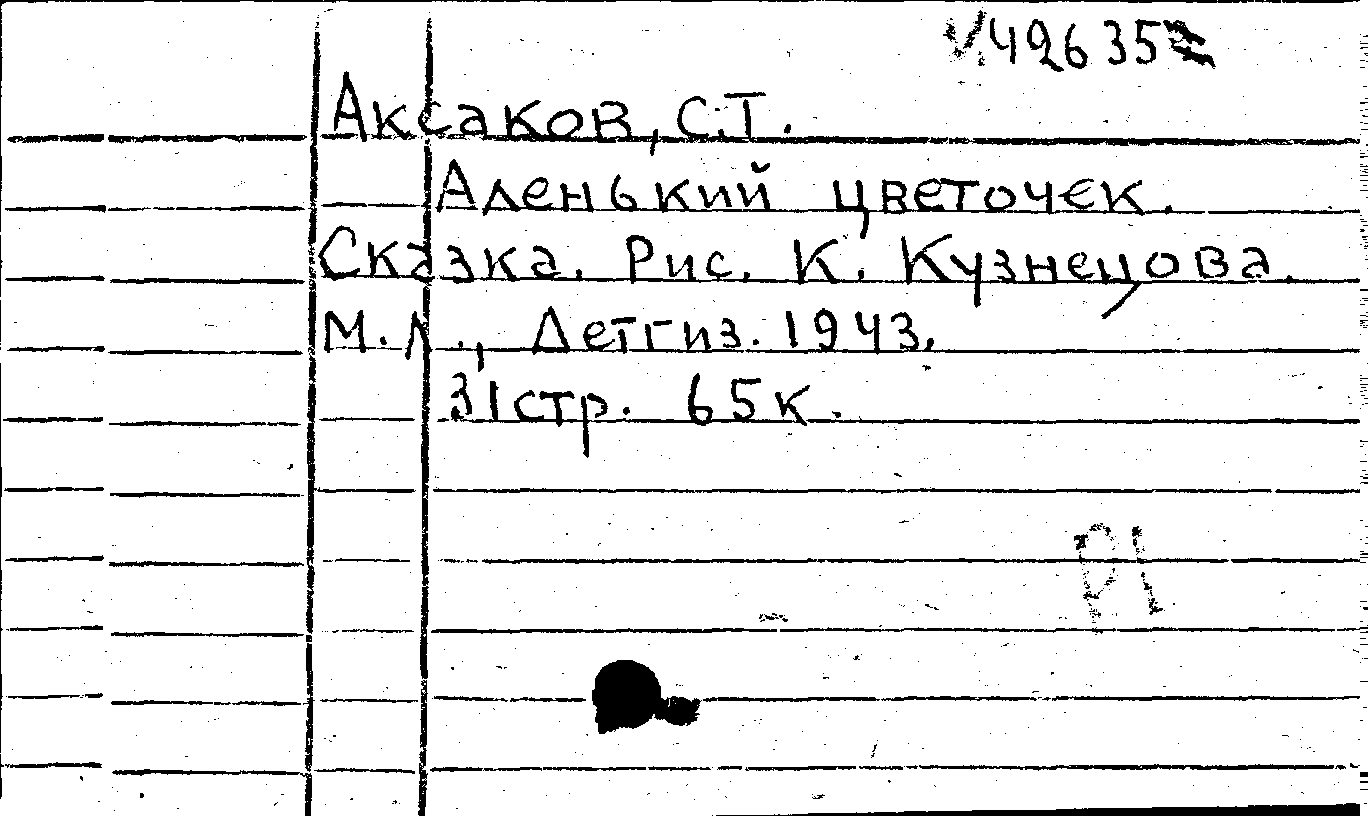 V.42635
Аксаков, С.Т.
Аленький цветочек.
Сказка. Рис. К. Кузнецова.
М.Л., Детгиз. 1943.
31стр. 65к.